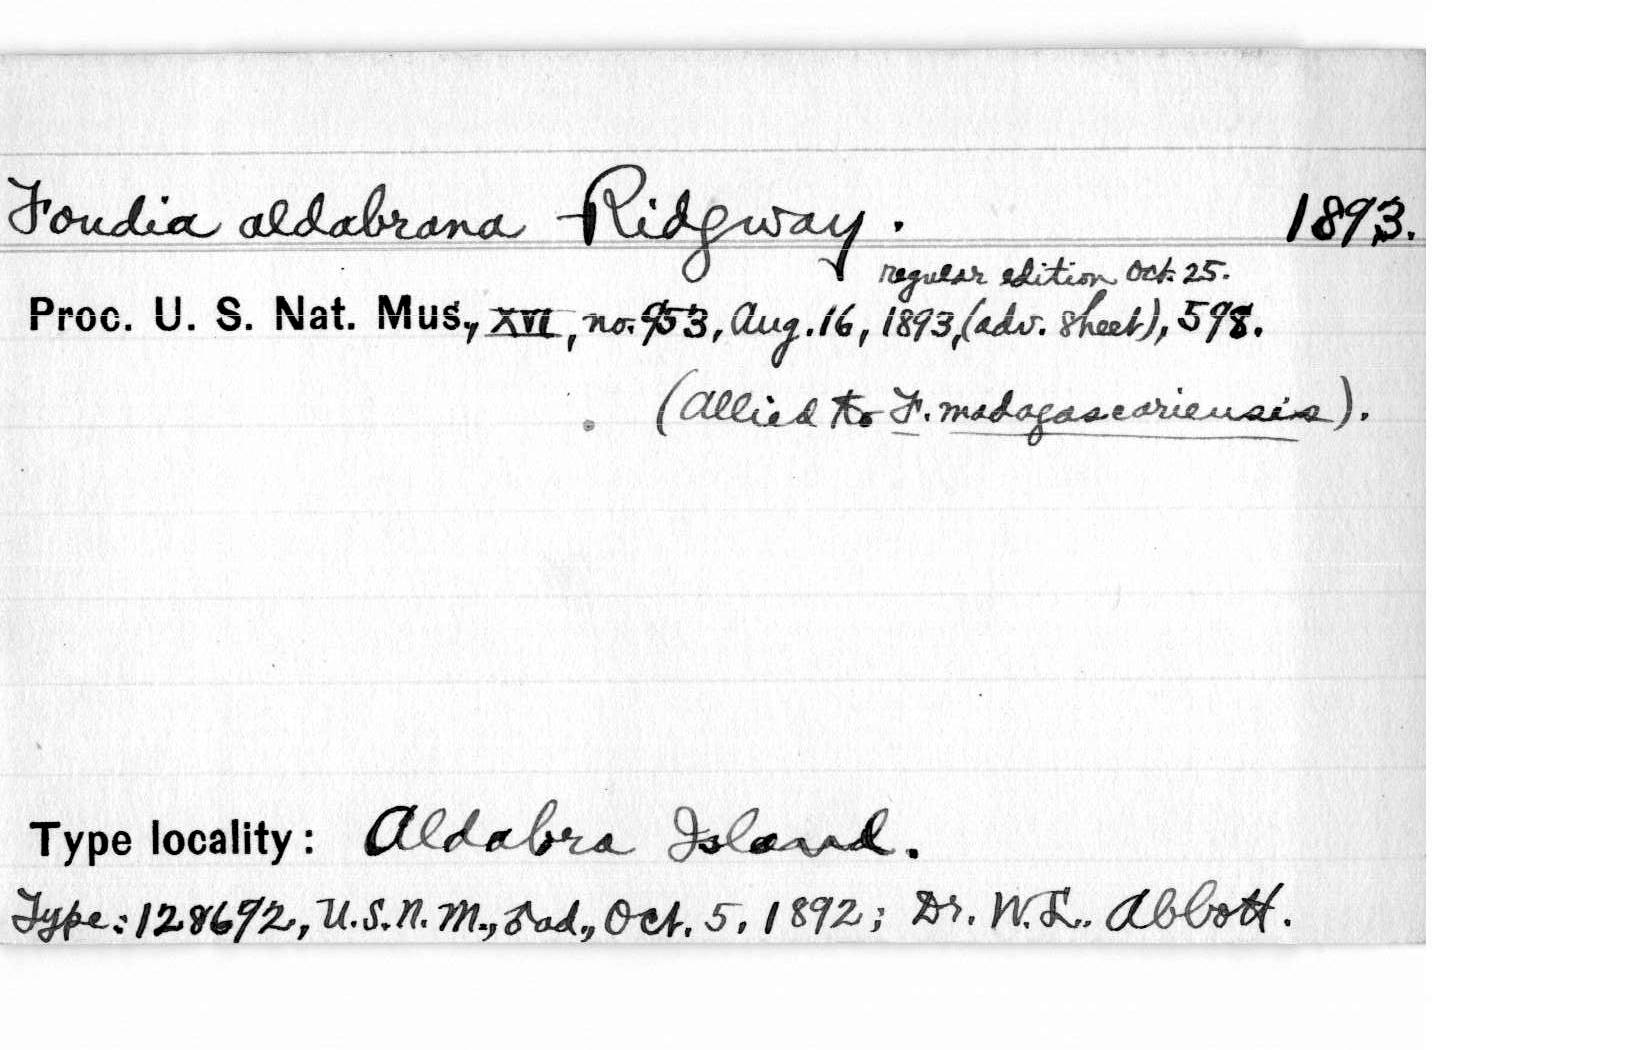 Foudia aldabrana Ridgway. 1893.
regular edition Oct. 25.
Proc. U. S. Nat. Mus., XVI, no. 953, Aug. 16, 1893, (adv. sheet), 598.
(Allied to F. madagascariensis).
Type locality: Aldabra Island.
Type: 128692, U.S.N.M., ♂ ad., Oct. 5, 1892; Dr. W. L. Abbott.